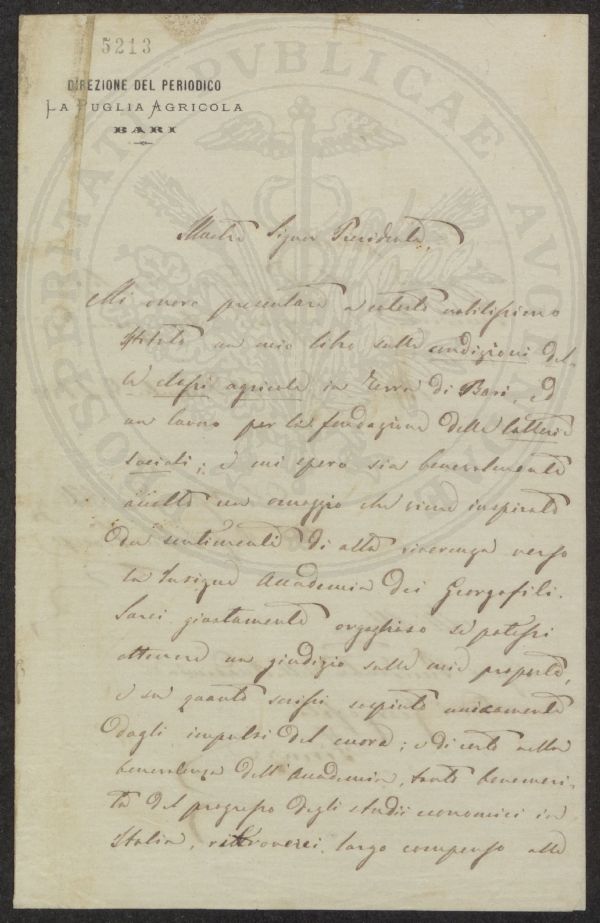 5213
DIREZIONE DEL PERIODICO
LA PUGLIA AGRICOLA
BARI
PROSPERITATI PVBLICAE AVGENDAE
Signor Presidente,
Mi onoro presentare a codesto nobilissimo
Istituto un mio libro sulle condizioni del-
le classi agricole in Terra di Bari, ed
un lavoro per la fondazione delle latterie
sociali; e mi spero sia benevolmente
accolto un omaggio che viene inspirato
da sentimenti di alta riverenza verso
la Insigne Accademia dei Georgofili.
Sarei giustamente orgoglioso se potessi
ottenere un giudizio sulle mie proposte,
e su quanto scrissi sospinto unicamente
dagli impulsi del cuore; e di certo nella
benevolenza dell'Accademia, tanto benemeri-
ta del progresso degli studii economici in
Italia, ritroverei largo compenso alle